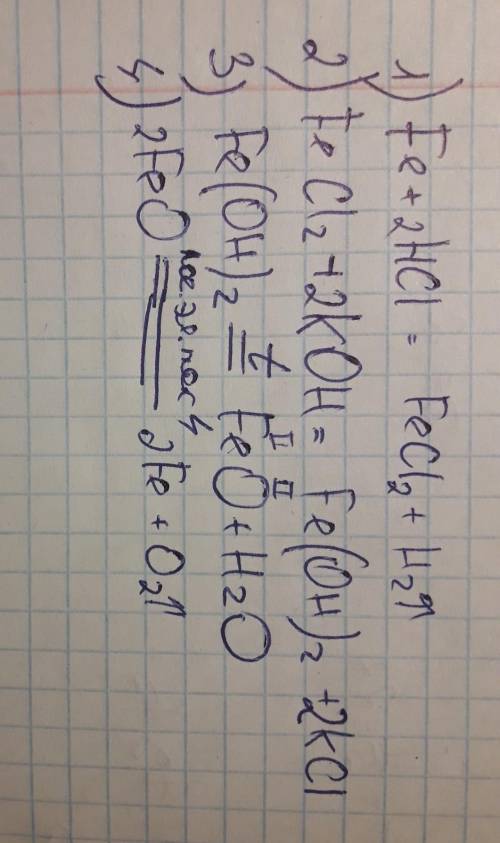 1) Fe + 2HCl = FeCl₂ + H₂↑
2) FeCl₂ + 2KOH = Fe(OH)₂ + 2KCl
t
3) Fe(OH)₂ = FeO + H₂O
II II
4) 2FeO = 2Fe + O₂↑